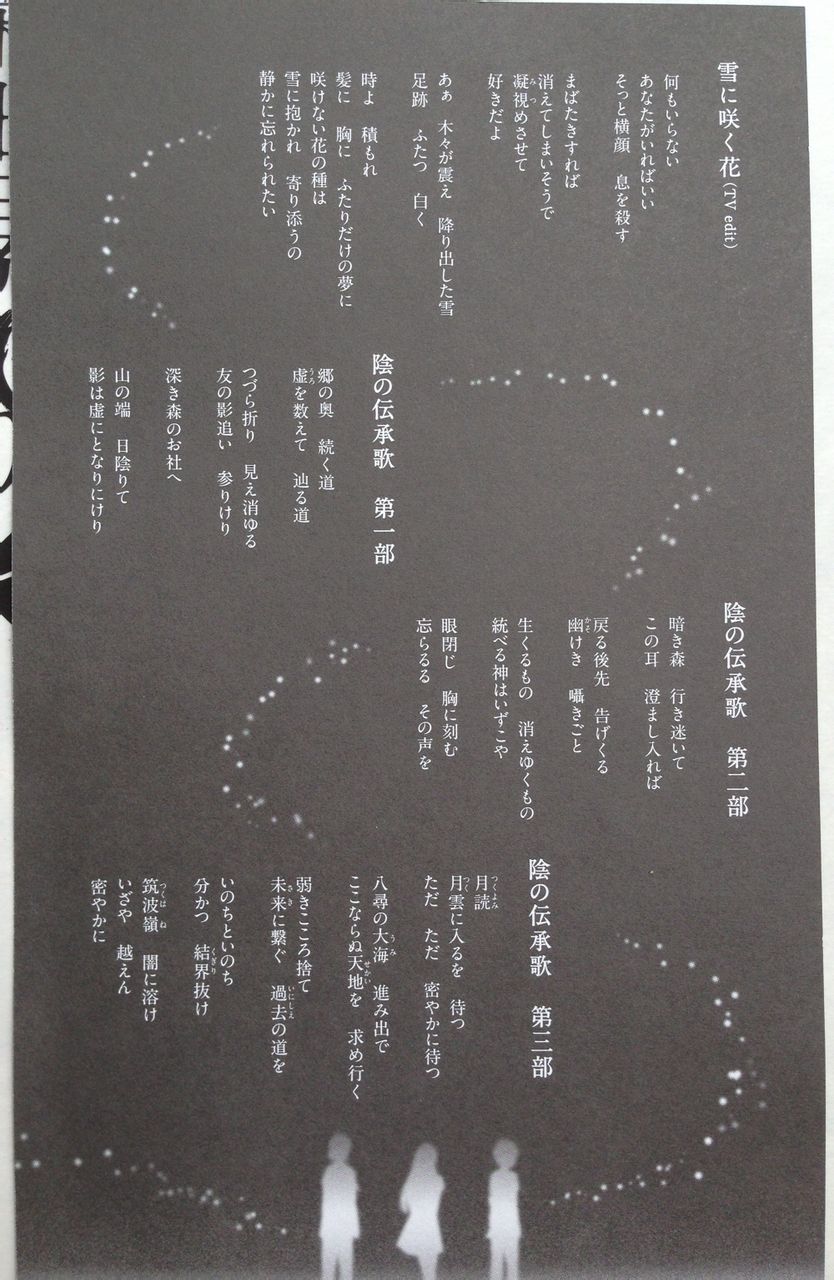 雪に咲く花(TV edit)
何もいらない
あなたがいればいい
そっと横顔　息を殺す
まばたきすれば
消えてしまいそうで
凝視(みつ)めさせて
好きだよ
あぁ　木々が震え　降り出した雪
足跡　ふたつ　白く
時よ　積もれ
髪に　胸に　ふたりだけの夢に
咲けない花の種は
雪に抱かれ　寄り添うの
静かに忘れられたい
陰の伝承歌　第一部
郷の奥　続く道
虚(うろ)を数えて　辿る道
つづら折り　見え消ゆる
友の影追い　参りけり
深き森のお社へ
山の端　日陰りて
影は虚にとなりにけり
陰の伝承歌　第二部
暗き森　行き迷いて
この耳　澄まし入れば
戻る後先　告げくる
幽(かそ)けき　囁きごと
生くるもの　消えゆくもの
統べる神はいずこや
眼閉じ　胸に刻む
忘らるる　その声を
陰の伝承歌　第三部
月読(つくよみ)
月(つく)雲に入るを　待つ
ただ　ただ　密やかに待つ
八尋の大海(うみ)　進み出で
ここならぬ天地(せかい)を　求め行く
弱きこころ捨て
未来(さき)に繋ぐ　過去(いにしえ)の道を
いのちといのち
分かつ　結界(くぎり)抜け
筑波嶺(つくはね)　闇に溶け
いざや　越えん
密やかに